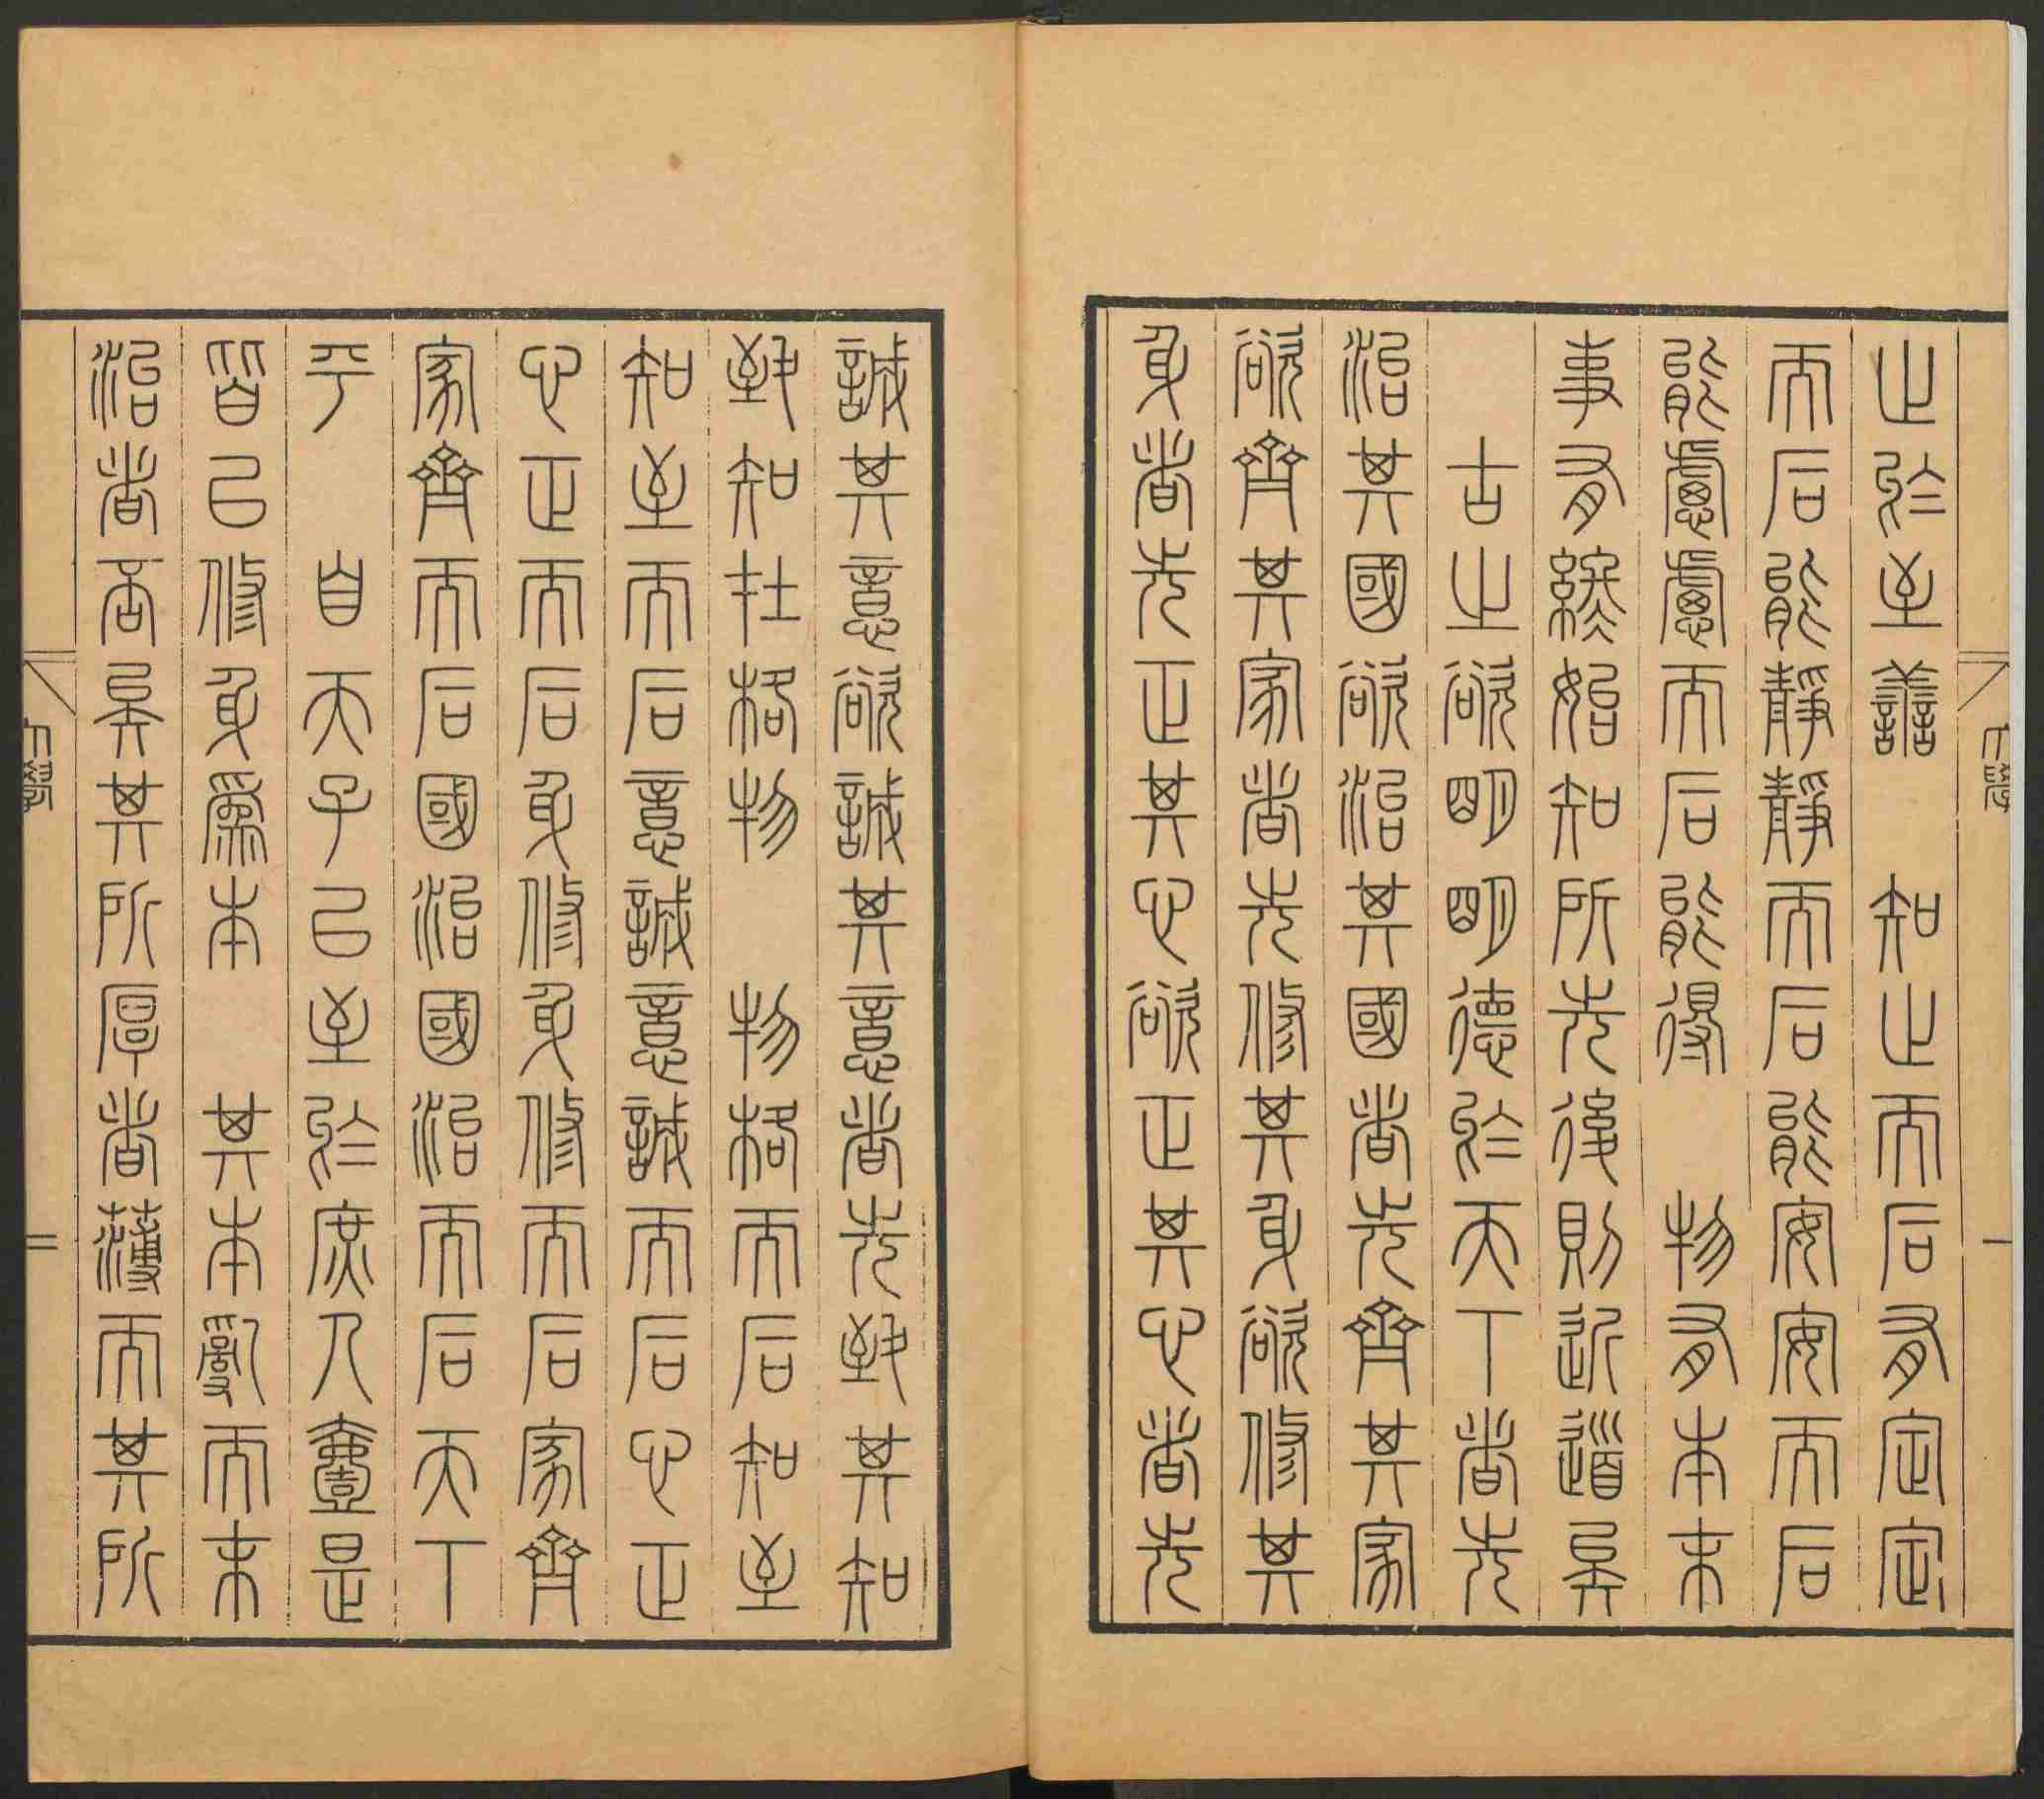 大學
一
止於至善　知止而后有定定
而后能靜靜而后能安安而后
能慮慮而后能得　物有本末
事有終始知所先後則近道矣
古之欲明明德於天下者先
治其國欲治其國者先齊其家
欲齊其家者先修其身欲修其
身者先正其心欲正其心者先
誠其意欲誠其意者先致其知
致知在格物　物格而后知至
知至而后意誠意誠而后心正
心正而后身修身修而后家齊
家齊而后國治國治而后天下
平　自天子以至於庶人壹是
皆以修身為本　其本亂而末
治者否矣其所厚者薄而其所
大學
二